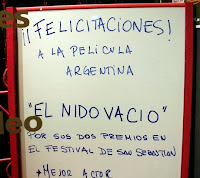 ¡¡FELICITACIONES!
A LA PELICULA
ARGENTINA
"EL NIDO VACIO"
POR SUS DOS PREMIOS EN
EL FESTIVAL DE SAN SEBASTIAN
*MEJOR ACTOR